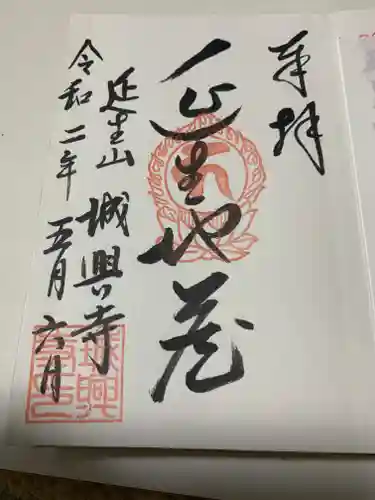 奉拝
延生地蔵
延生山 城興寺
令和二年 五月 六月
城興寺印